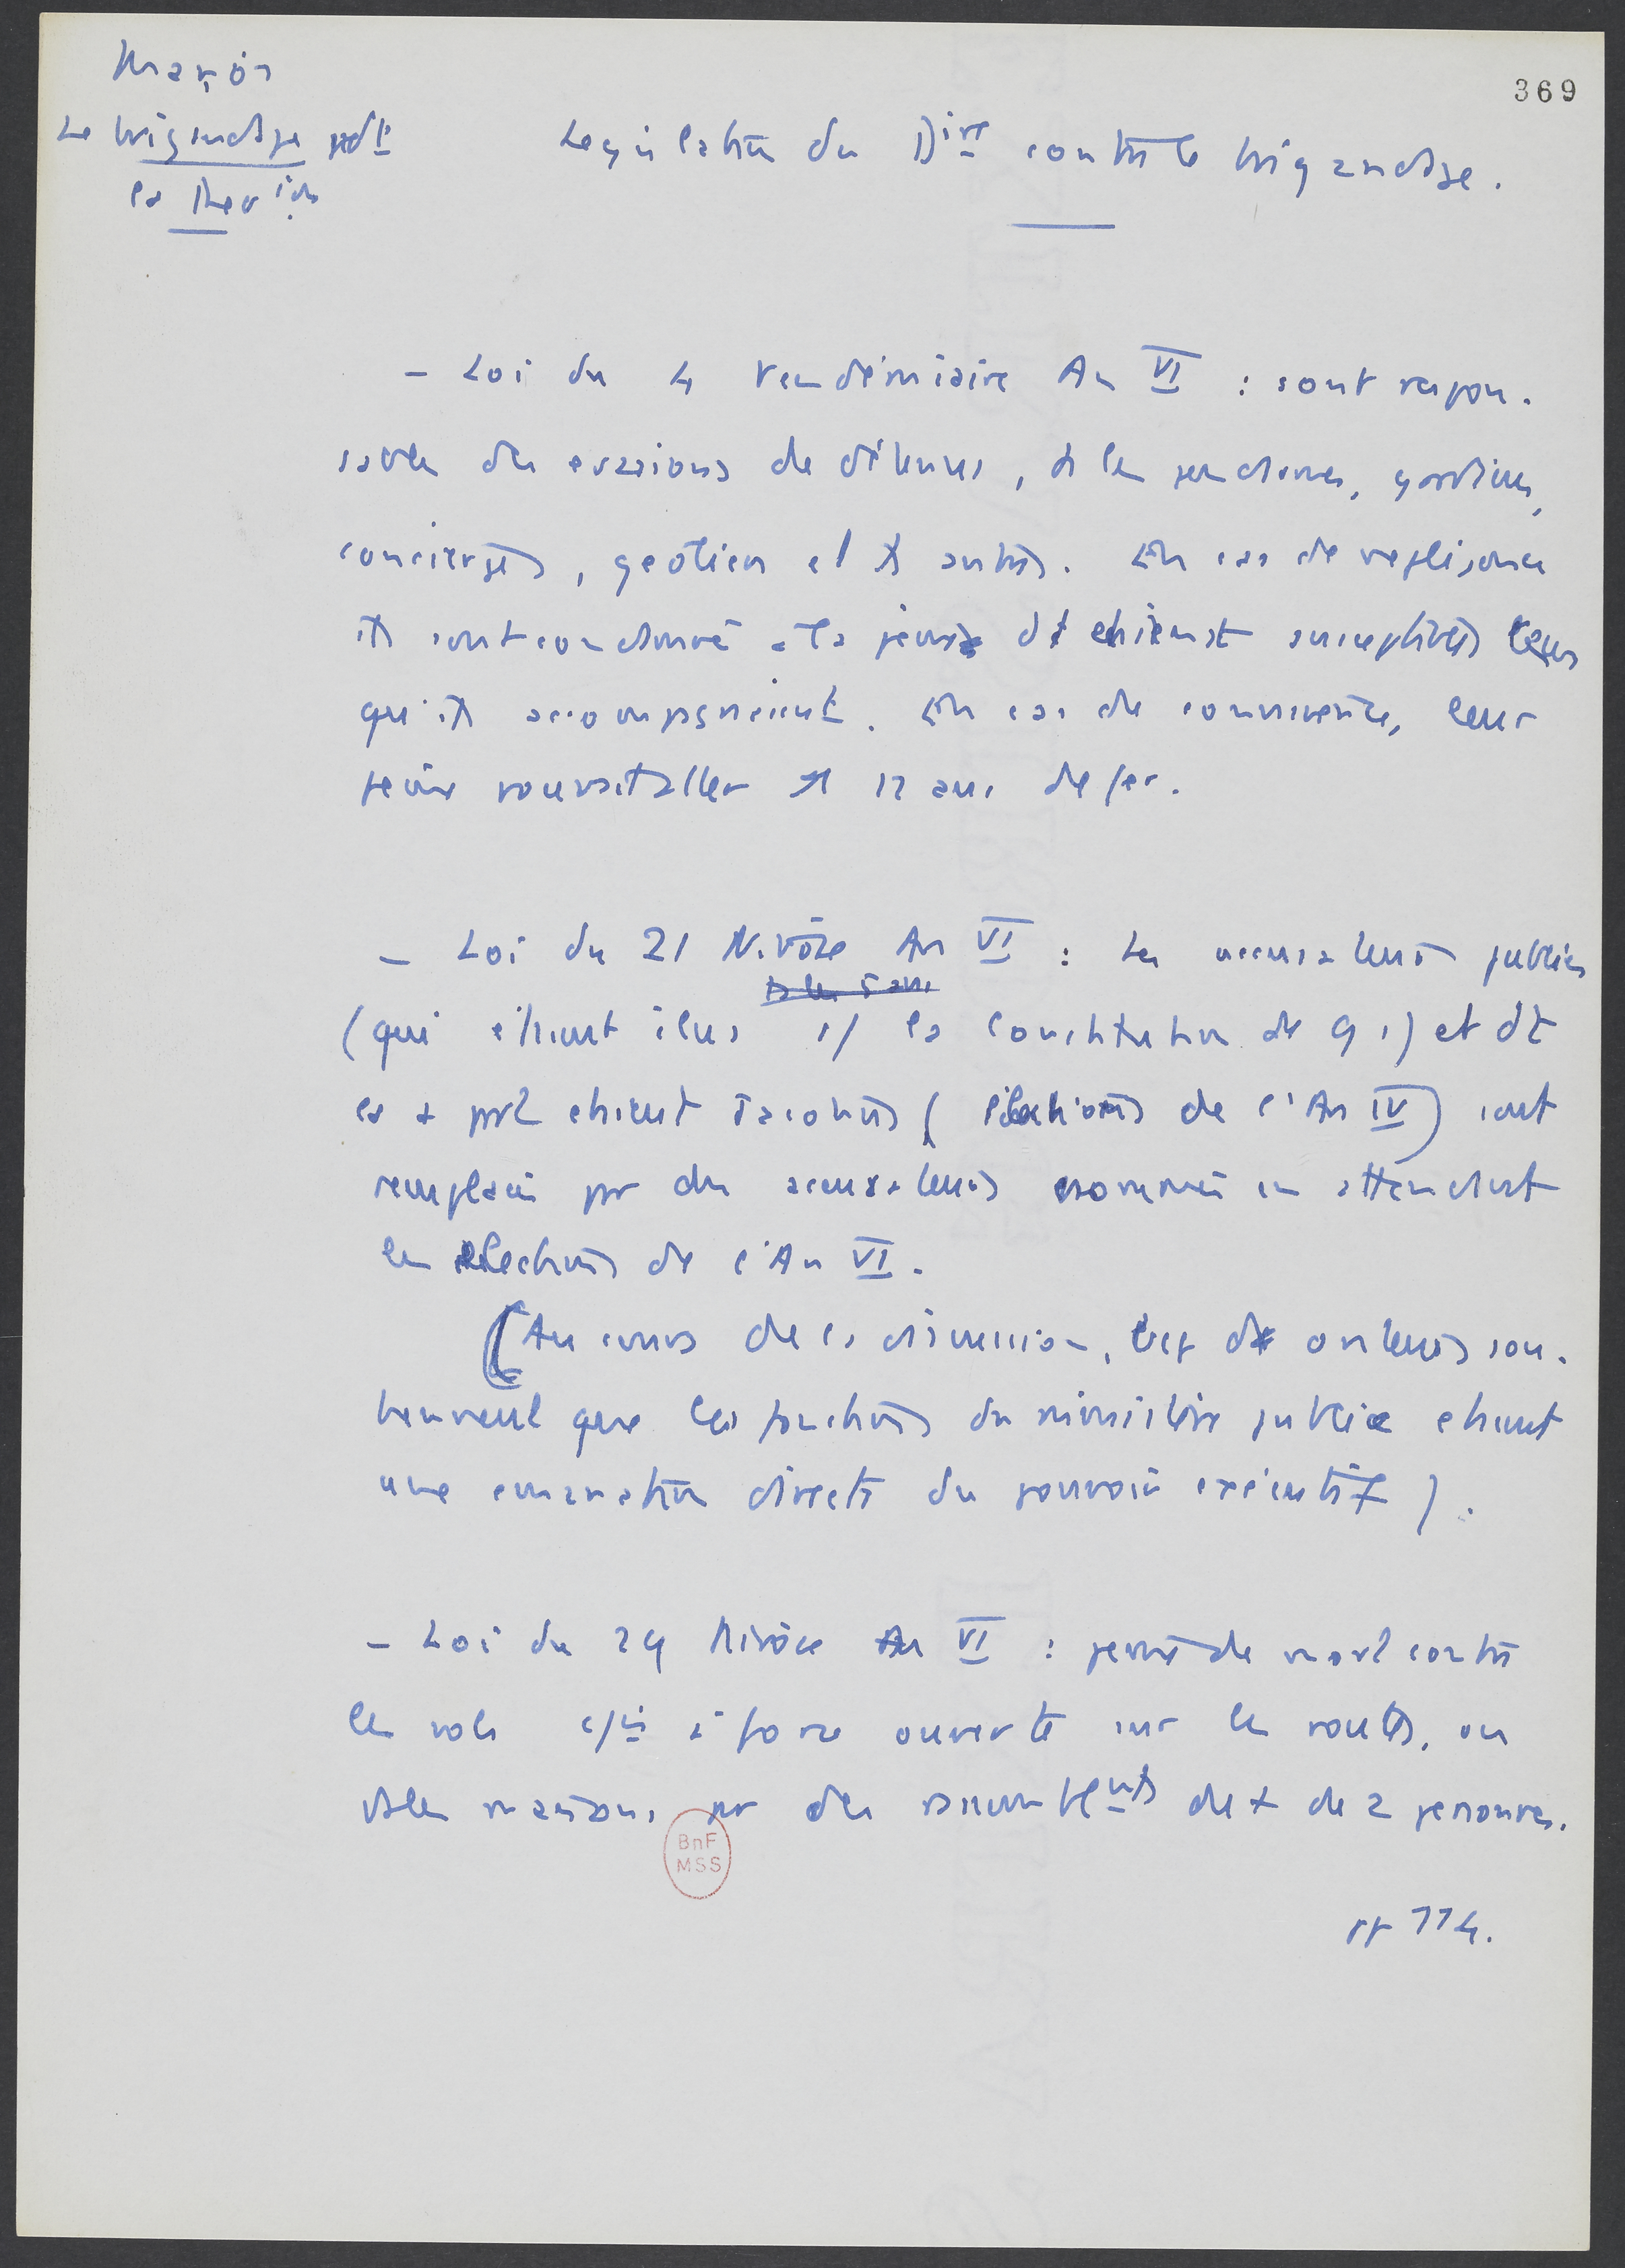 Marion
369
Le brigandage pdt
la Rev ion
Legislation du Dire contre le brigandage.
- Loi du 4 Vendémiaire An VI : sont respon-
sables des evasions de détenus, ts les gendarmes, gardiens,
concierges, geoliers et ts autres. En cas de negligence
ils sont condamné à la peine dt etaient susceptibles ceux
qu'ils accompagnaient. En cas de connivence, leur
peine pouvait aller 12 ans de fer.
- Loi du 21 Nivôse An VI : Les accusateurs publics
(qui etaient élus s/ la Constitution de 91) et dt
la + part etaient Jacobins (élections de l'An IV) sont
remplacés par des accusateurs nommés en attendant
les elections de l'An VI.
(Au cours de la discussion, bcp d' orateurs sou-
tiennent que les fonctions du ministère public etaient
une emanation directe du pouvoir exécutif).
- Loi du 29 Nivôse An VI : peine de mort contre
les vols à force ouverte sur les routes, ou
ds les maisons par des rassemblemts de + de 2 personnes.
pp 114.
BnF
MSS